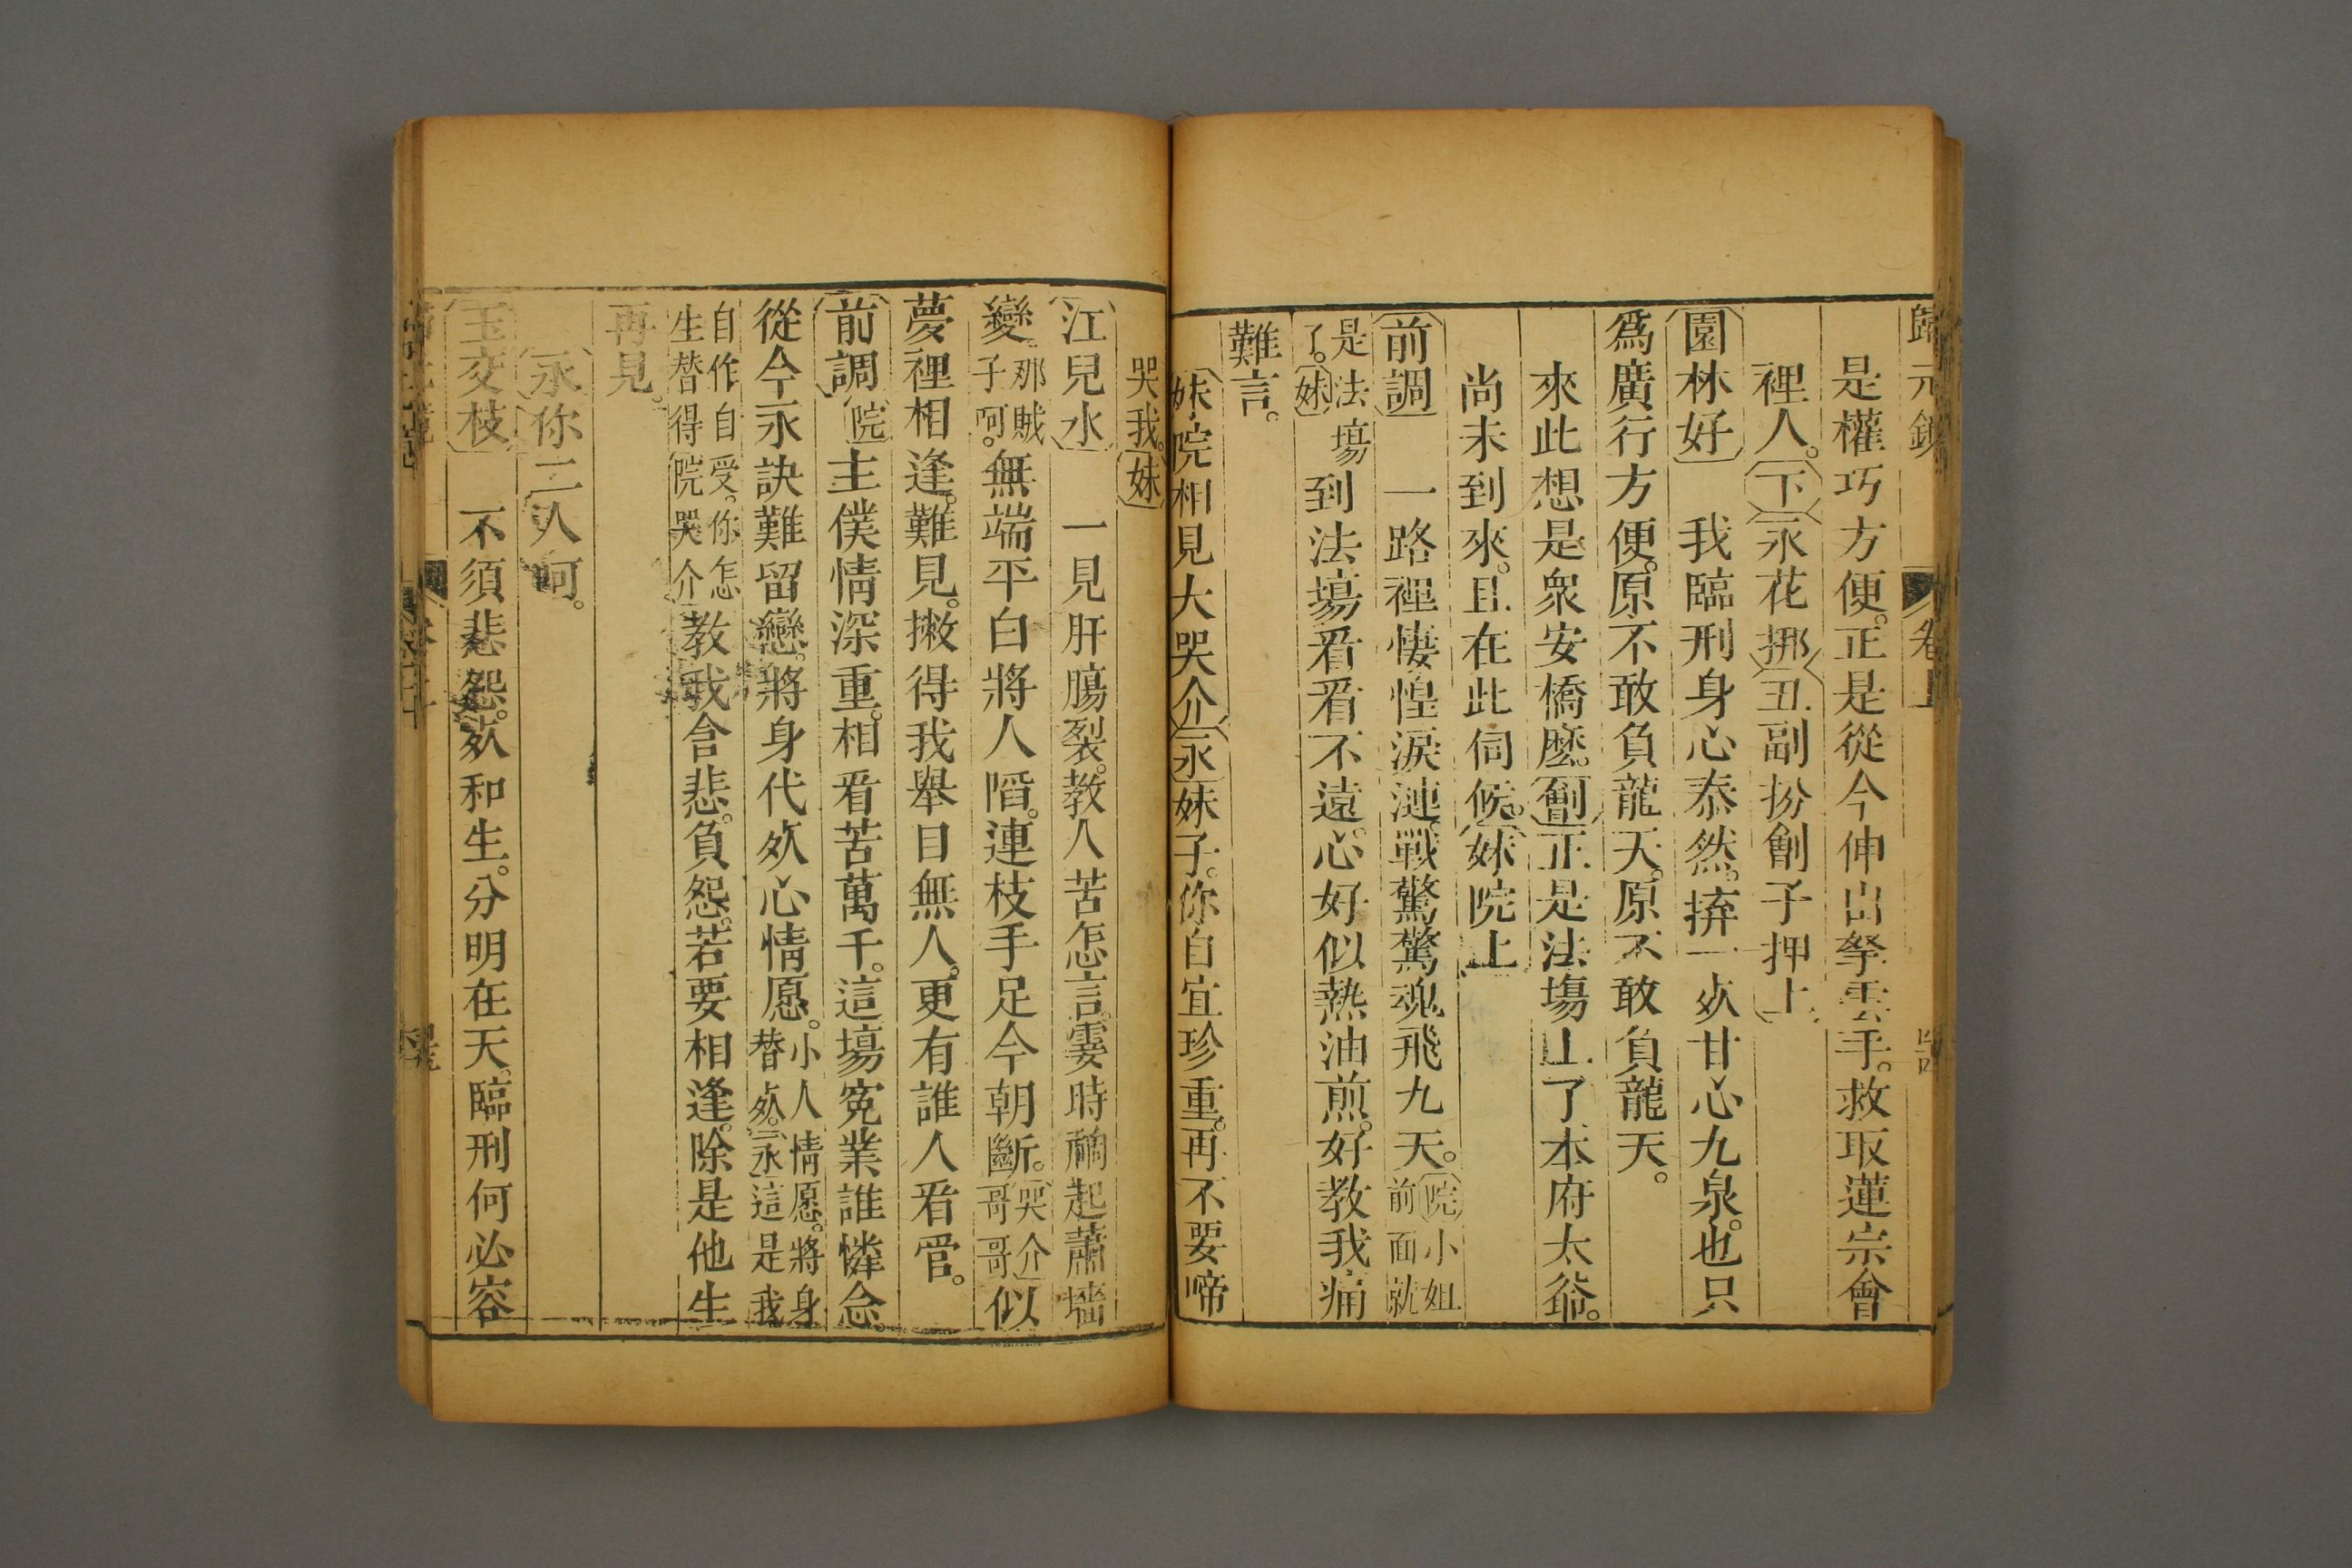 歸元鏡 卷上
是權巧方便。正是從今伸出拏雲手。救取蓮宗會
裡人。下永花挪丑副扮劊子押上
園林好 我臨刑身心泰然。拚一死甘心九泉。也只
爲廣行方便。原不敢負龍天。原不敢負龍天。
來此想是衆安橋麽。劊正是法塲上了本府太爺。
尚未到來。且在此伺候。妹院上
前調 一路裡悽惶淚漣。戰驚驚魂飛九天。院小姐前面就
是法塲了。妹到法塲看看不遠。心好似熱油煎。好教我痛
難言。
妹院相見大哭介永妹子。你自宜珍重。再不要啼
哭我。妹
江兒水 一見肝腸裂。教人苦怎言。霎時禍起蕭墻
變。那賊子呵。無端平白將人陷。連枝手足今朝斷。哭介哥哥似
夢裡相逢。難見。撇得我舉目無人。更有誰人看管。
前調 院主僕情深重。相看苦萬千。這塲寃業誰憐念。
從今永訣難留戀。將身代死心情愿。小人情愿。將身替死。永這是我
自作自受。你怎生替得院哭介教我含悲。負怨。若要相逢。除是他生
再見。
永你二人呵。
玉交枝 不須悲怨。死和生。分明在天。臨刑何必容